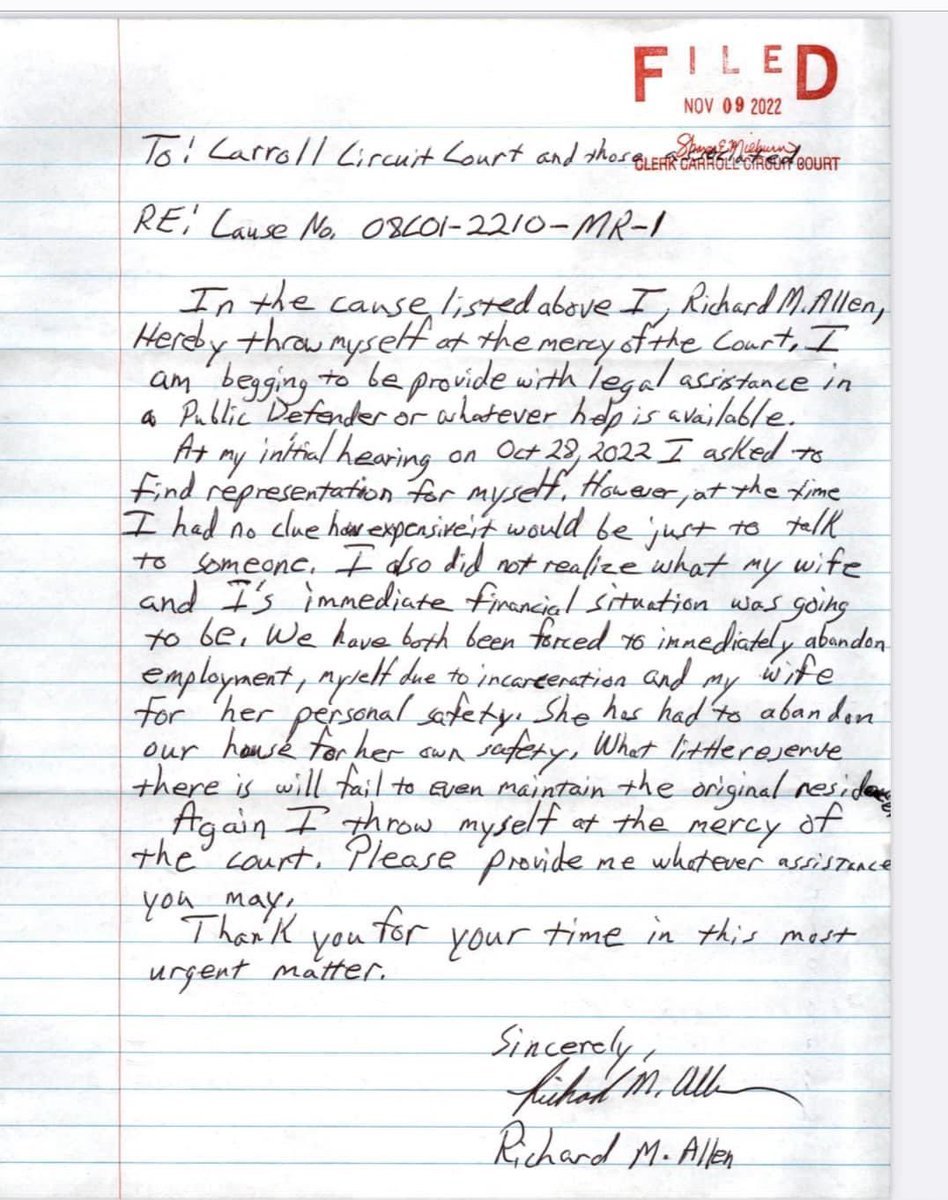 FILED
NOV 09 2022
To: Carroll Circuit Court and those associated
CLERK CARROLL CIRCUIT COURT
RE: Cause No. 08C01-2210-MR-1
In the cause listed above I, Richard M. Allen,
Hereby throw myself at the mercy of the Court. I
am begging to be provide with legal assistance in
a Public Defender or whatever help is available.
At my initial hearing on Oct 28, 2022 I asked to
find representation for myself. However, at the time
I had no clue how expensive it would be just to talk
to someone. I also did not realize what my wife
and I's immediate financial situation was going
to be. We have both been forced to immediately abandon
employment, myself due to incarceration and my wife
for her personal safety. She has had to abandon
our house for her own safety. What little reserve
there is will fail to even maintain the original residence
Again I throw myself at the mercy of
the court. Please provide me whatever assistance
you may.
Thank you for your time in this most
urgent matter.
Sincerely,
Richard M. Allen
Richard M. Allen